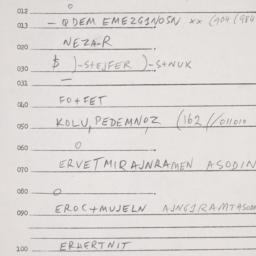 012
013 — QDEM EMEZGINOSN xx (904 (984
NEZAR
020
030 $ )-STEJFER )-S+NUK
031 —
040 FO+FET
050 KOLU, PEDEMNOZ (162 //011010
060
070 ERVETMIRAJNRAMEN ASODIN
080
090 EROC+MUJELN AJNGJRAMTASODN
100 ERHERTNIT